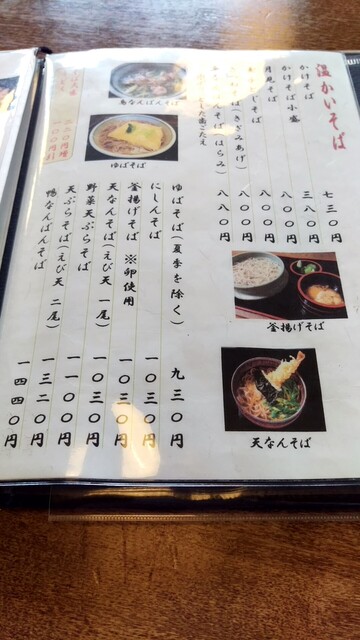 温かいそば
かけそば 七三〇円
かけそば小盛 三八〇円
月見そば 八〇〇円
八〇〇円
八〇〇円
八八〇円
ゆばそば(夏季を除く) 九三〇円
にしんそば 一〇三〇円
釜揚げそば ※卵使用 一〇三〇円
天なんそば(えび天 一尾) 一〇三〇円
野菜天ぷらそば 一一〇〇円
天ぷらそば(えび天 二尾) 一三二〇円
鴨なんばんそば 一四四〇円
鳥なんばんそば
ゆばそば
釜揚げそば
天なんそば